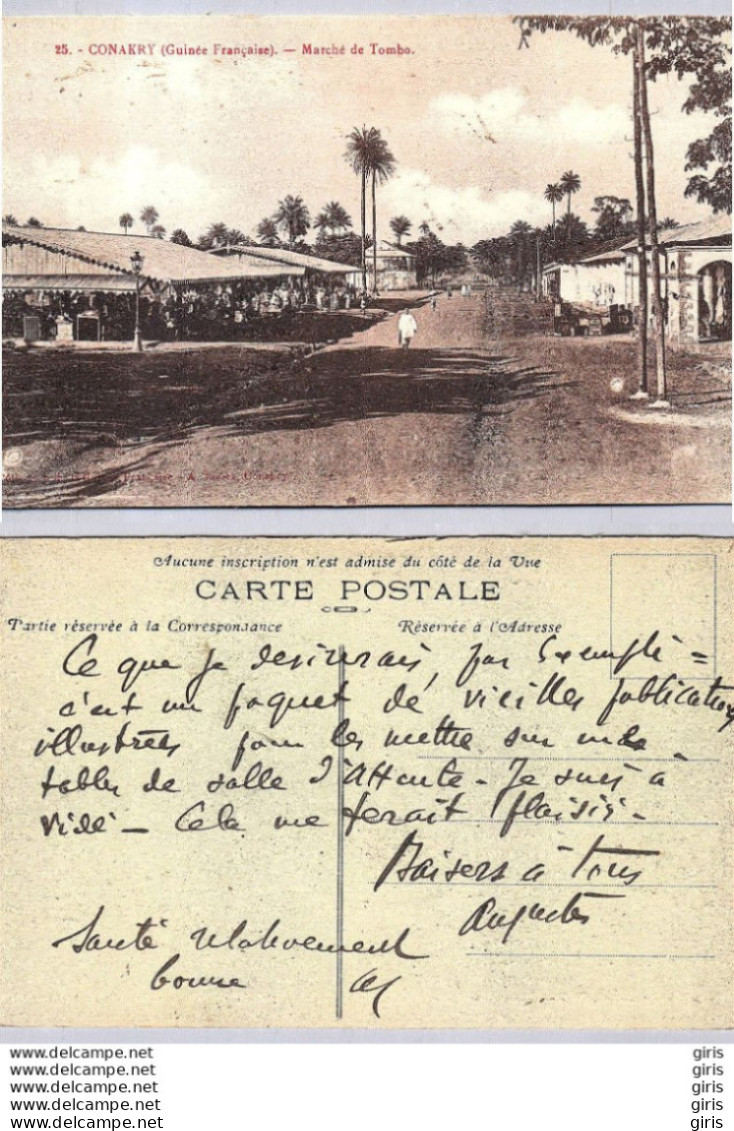 25. - CONAKRY (Guinée Française). — Marché de Tombo.
Aucune inscription n'est admise du côté de la Vue
CARTE POSTALE
Partie réservée à la Correspondance
Réservée à l'Adresse
Ce que je desirerais, par Exemple =
c'est un paquet de vieilles publications
illustrées pour les mettre sur mes
tables de salle d'Attente - Je suis à
vide - Cela me ferait plaisir -
Baisers à Tous
Auguste
Santé relativement
bonne
www.delcampe.net
www.delcampe.net
www.delcampe.net
www.delcampe.net
www.delcampe.net
giris
giris
giris
giris
giris